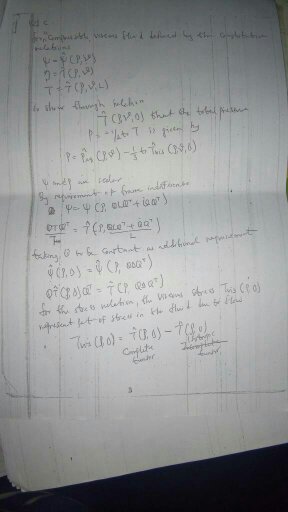 1 (b) c.
Compressible viscous fluid defined by the constitutive
relations
Ψ = Ψ̂ (ρ, ϑ)
η = η̂ (ρ, ϑ)
T = T̂ (ρ, ϑ, L)
to show through relation
T̂ (ρ, ϑ, 0) that the total pressure
P = -1/3 tr T is given by
P = P̂eq (ρ, ϑ) - 1/3 tr T̂vis (ρ, ϑ, D)
Ψ and ρ are scalar
By requirement of frame indifference
Ψ = Ψ̂ (ρ, QLQᵀ + Q̇Qᵀ)
QTQᵀ = T̂ (ρ, QLQᵀ + Q̇Qᵀ)
taking Q to be constant as additional requirement
Ψ̂ (ρ, D) = Ψ̂ (ρ, QDQᵀ)
QT̂ (ρ, D) Qᵀ = T̂ (ρ, QDQᵀ)
for the stress relation, the viscous stress Tvis (ρ, D)
represent part of stress in the fluid due to flow
Tvis (ρ, D) = T̂ (ρ, D) - T̂ (ρ, 0)
Complete tensor
tensor